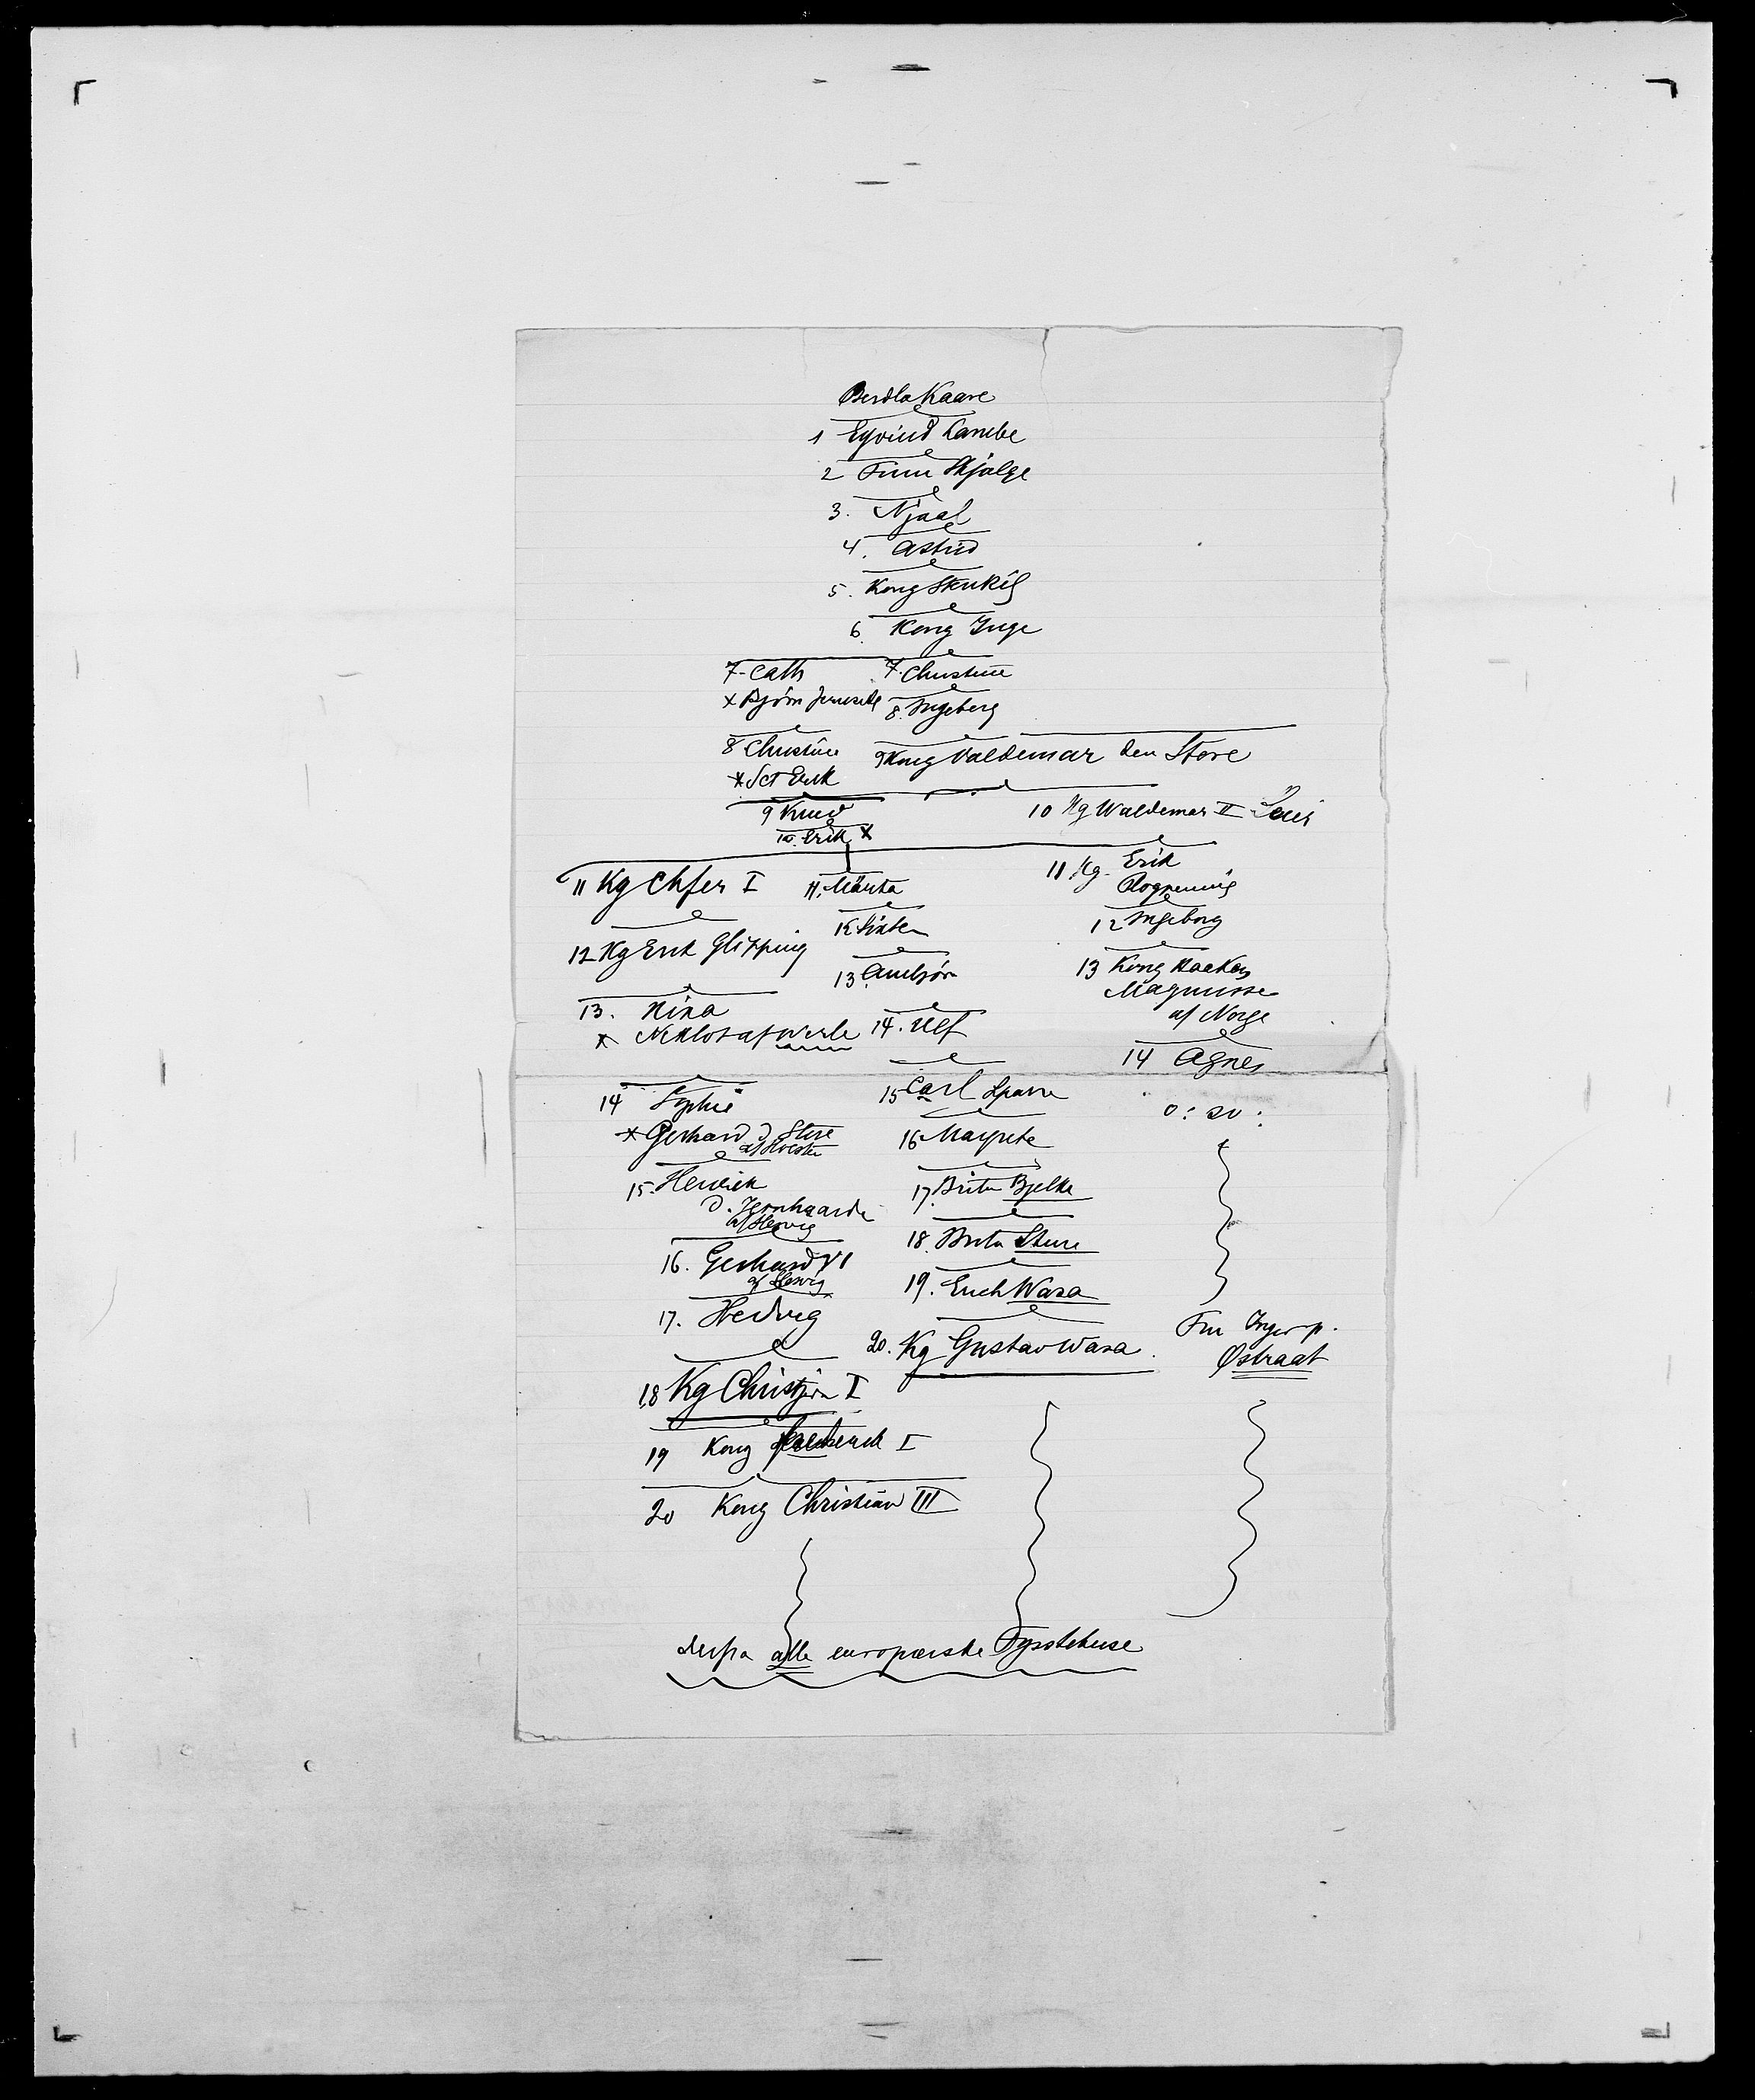 Berdla Kaare
1 Eyvind Lambe
2 Finn Skjalge
3. Njaal
4. Astrid
5. Kong Stenkil
6. Kong Inge
7- Cath 7. Christine
x Bjørn Jernside 8. Ingeborg
8 Christine 9 Kong Valdemar den Store
x Sct Erik
9 Knud 10 Kg Waldemar II Seier
10. Erik x
11 Kg Chfer I 11. Märta 11 Kg. Erik
Plogpennig
12 Kg Erik Glipping 12 Sixten 12 Ingeborg
13 Ambjörn 13 Kong Haakon
Magnusse
af Norge
13. Rixa
x Niklot af Werle 14. Ulf
14 Agnes
14 Sophie 15 Carl Sparre o: sv:
x Gerhard d Store
af Holsten
16 Margrete
15. Henrik
d. Jernhaarde
af Slesvig
17. Brita Bjelke
18. Brita Sture
16. Gerhard VI
af Slesvig
19. Erich Wasa
17. Hedvig
20. Kg Gustav Wasa Fru Inger p.
Østraat
18 Kg Christjern I
19 Kong Frederick I
20 Kong Christian III
derfra alle europæiske Fyrstehuse